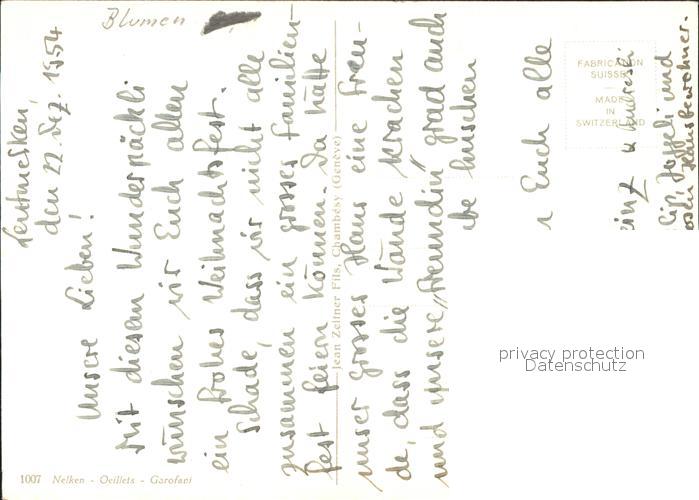 Blumen
Leutmerken,
den 22. Dez. 1954
Unsere Lieben!
Mit diesem Wunderpäckli
wünschen wir Euch allen
ein frohes Weihnachtsfest.
Schade, dass wir nicht alle
zusammen ein grosses Familien-
fest feiern können. Da hätte
unser grosses Haus eine Freu-
de, dass die Wände krachen
und unsere „Freundin" grad auch
Euch alle
und
FABRICATION
SUISSE
MADE
IN
SWITZERLAND
Jean Zellner Fils, Chambésy (Genève)
privacy protection
Datenschutz
1007 Nelken - Oeillets - Garofani